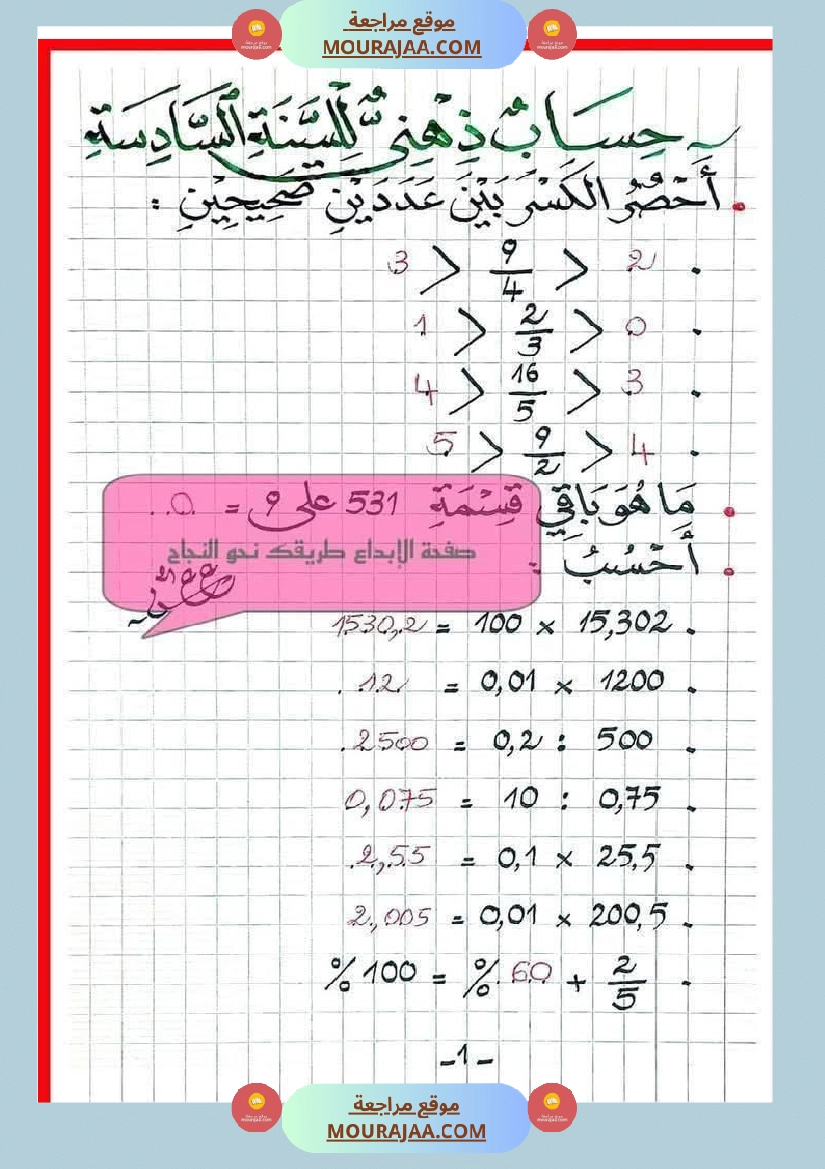 موقع مراجعة
MOURAJAA.COM
حِسَابٌ ذِهْنِيٌّ لِلسَّنَةِ السَّادِسَةِ
• أَحْصُرُ الكَسْرَ بَيْنَ عَدَدَيْنِ صَحِيحَيْنِ :
• 2 > 9/4 > 3
• 0 > 2/3 > 1
• 3 > 16/5 > 4
• 4 > 9/2 > 5
• مَا هُوَ بَاقِي قِسْمَةِ 531 على 9 = ..0..
صفحة الإبداع طريقك نحو النجاح
• أَحْسُبُ :
• 15,302 × 100 = 1530,2
• 1200 × 0,01 = .12.
• 500 : 0,2 = .2500
• 0,75 : 10 = 0,075
• 25,5 × 0,1 = .2,55
• 200,5 × 0,01 = 2,005
• 2/5 + 60 % = 100 %
-1-
موقع مراجعة
MOURAJAA.COM